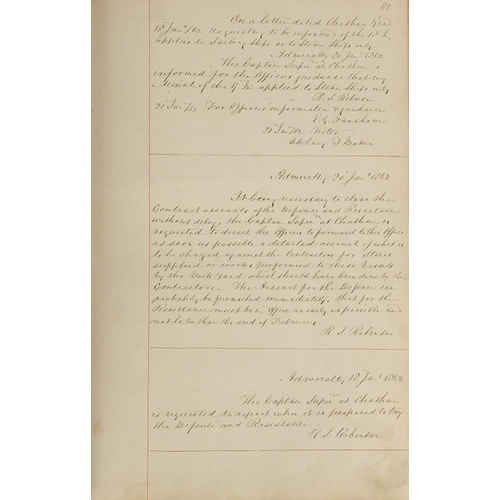 81
On a letter dated Chatham Yard
18 Jany/62 requesting to be informed if the 15 In
applies to Sailing Ships or to Steam Ships only.
Admiralty 20 Jany 1862
The Captain Supdt at Chatham is
informed for the Officers guidance that my
Minute of the 17 In applied to Steam Ships only.
R. S. Robinson
21 Jan/62 For Officers information & guidance
E. G. Fanshawe
21 Jan/62
Admiralty 20 Jany 1862
It being necessary to close the
Contract accounts of the Defence and Resistance
without delay, the Captain Supdt at Chatham is
requested to direct the Officers to forward to this Office
as soon as possible a detailed account of what is
to be charged against the Contractors for Stores
supplied or works performed to these Vessels
by the Dock Yard which should have been done by the
Contractors. The Account for the Defence can
probably be furnished immediately, that for the
Resistance must be in Office as early as possible and
not later than the end of February.
R. S. Robinson
Admiralty 18 Jany 1862
The Captain Supdt at Chatham
is requested to report when it is proposed to try
the Defence and Resistance.
R. S. Robinson